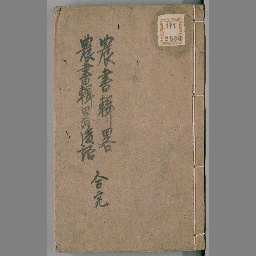 農書輯畧
農書輯畧後語
合完